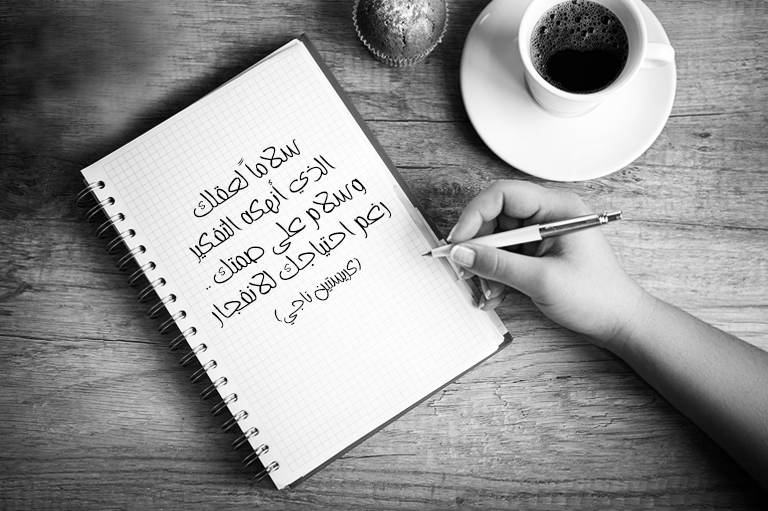 سلاماً لعقلك
الذي أنهكه التفكير
وسلام على صمتك ..
رغم احتياجك للانفجار
(كريستين ناجي)